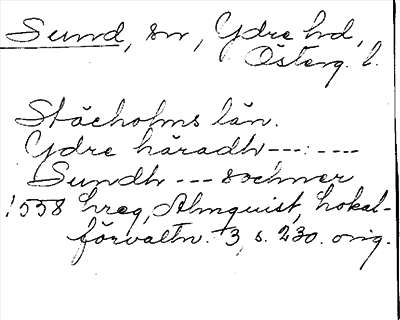 Sund, sn, Ydre hd,
Österg. l.
Stäeholms län.
Ydre häradh ---:----
Sundh --- sochner
1558 hreg, Almquist, Lokal-
förvaltn. 3, s. 230. orig.